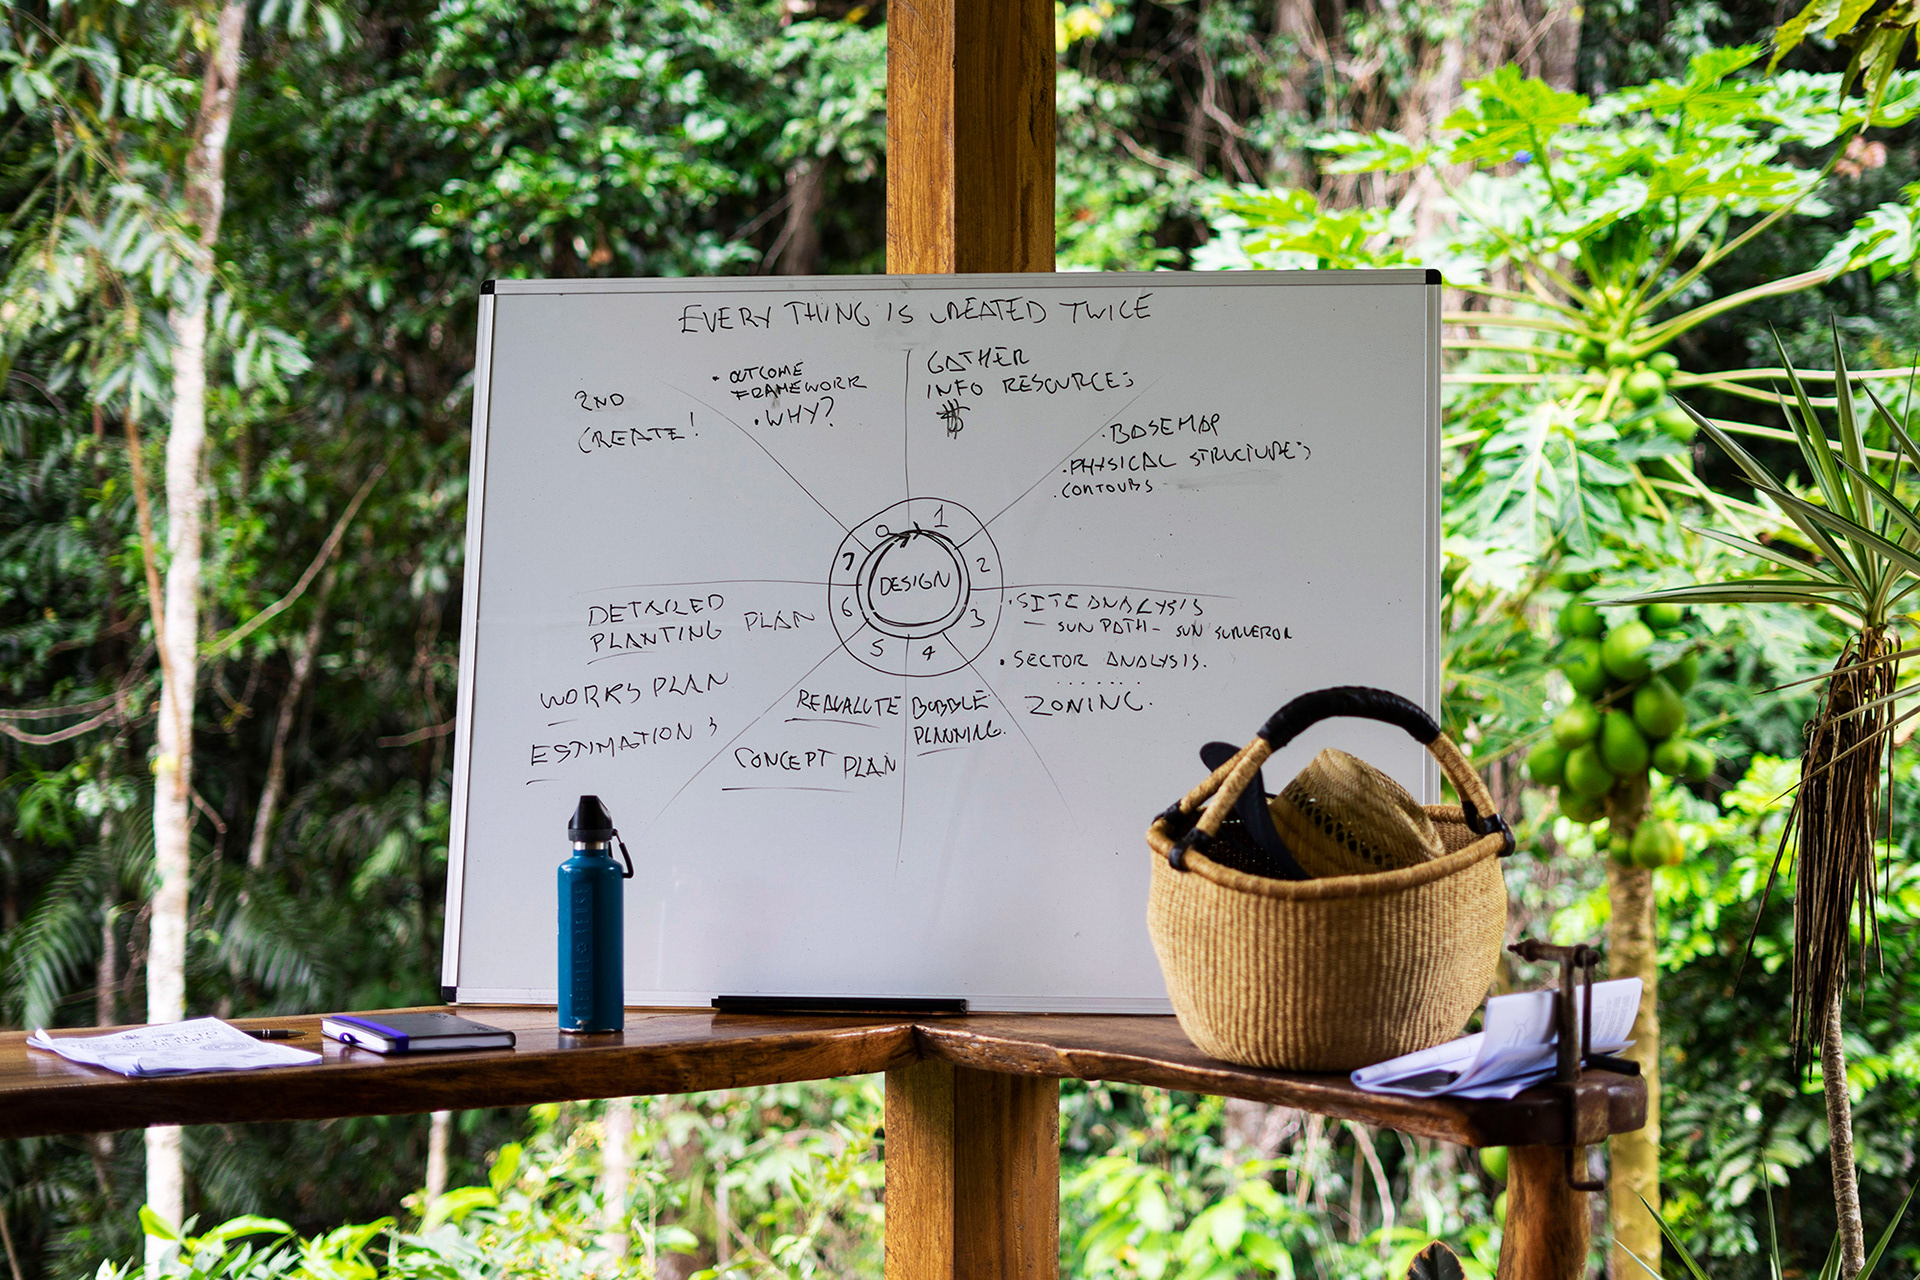 EVERY THING IS CREATED TWICE
• OUTCOME
FRAMEWORK
• WHY?
GATHER
INFO RESOURCES
$
2ND
CREATE!
• BASEMAP
• PHYSICAL STRUCTURES
• CONTOURS
0
1
2
3
4
5
6
7
DESIGN
• SITE ANALYSIS
— SUN PATH - SUN SURVEYOR
• SECTOR ANALYSIS.
ZONING.
BUBBLE
PLANNING.
REAVALUTE
CONCEPT PLAN
DETAILED
PLANTING PLAN
WORKS PLAN
ESTIMATIONS